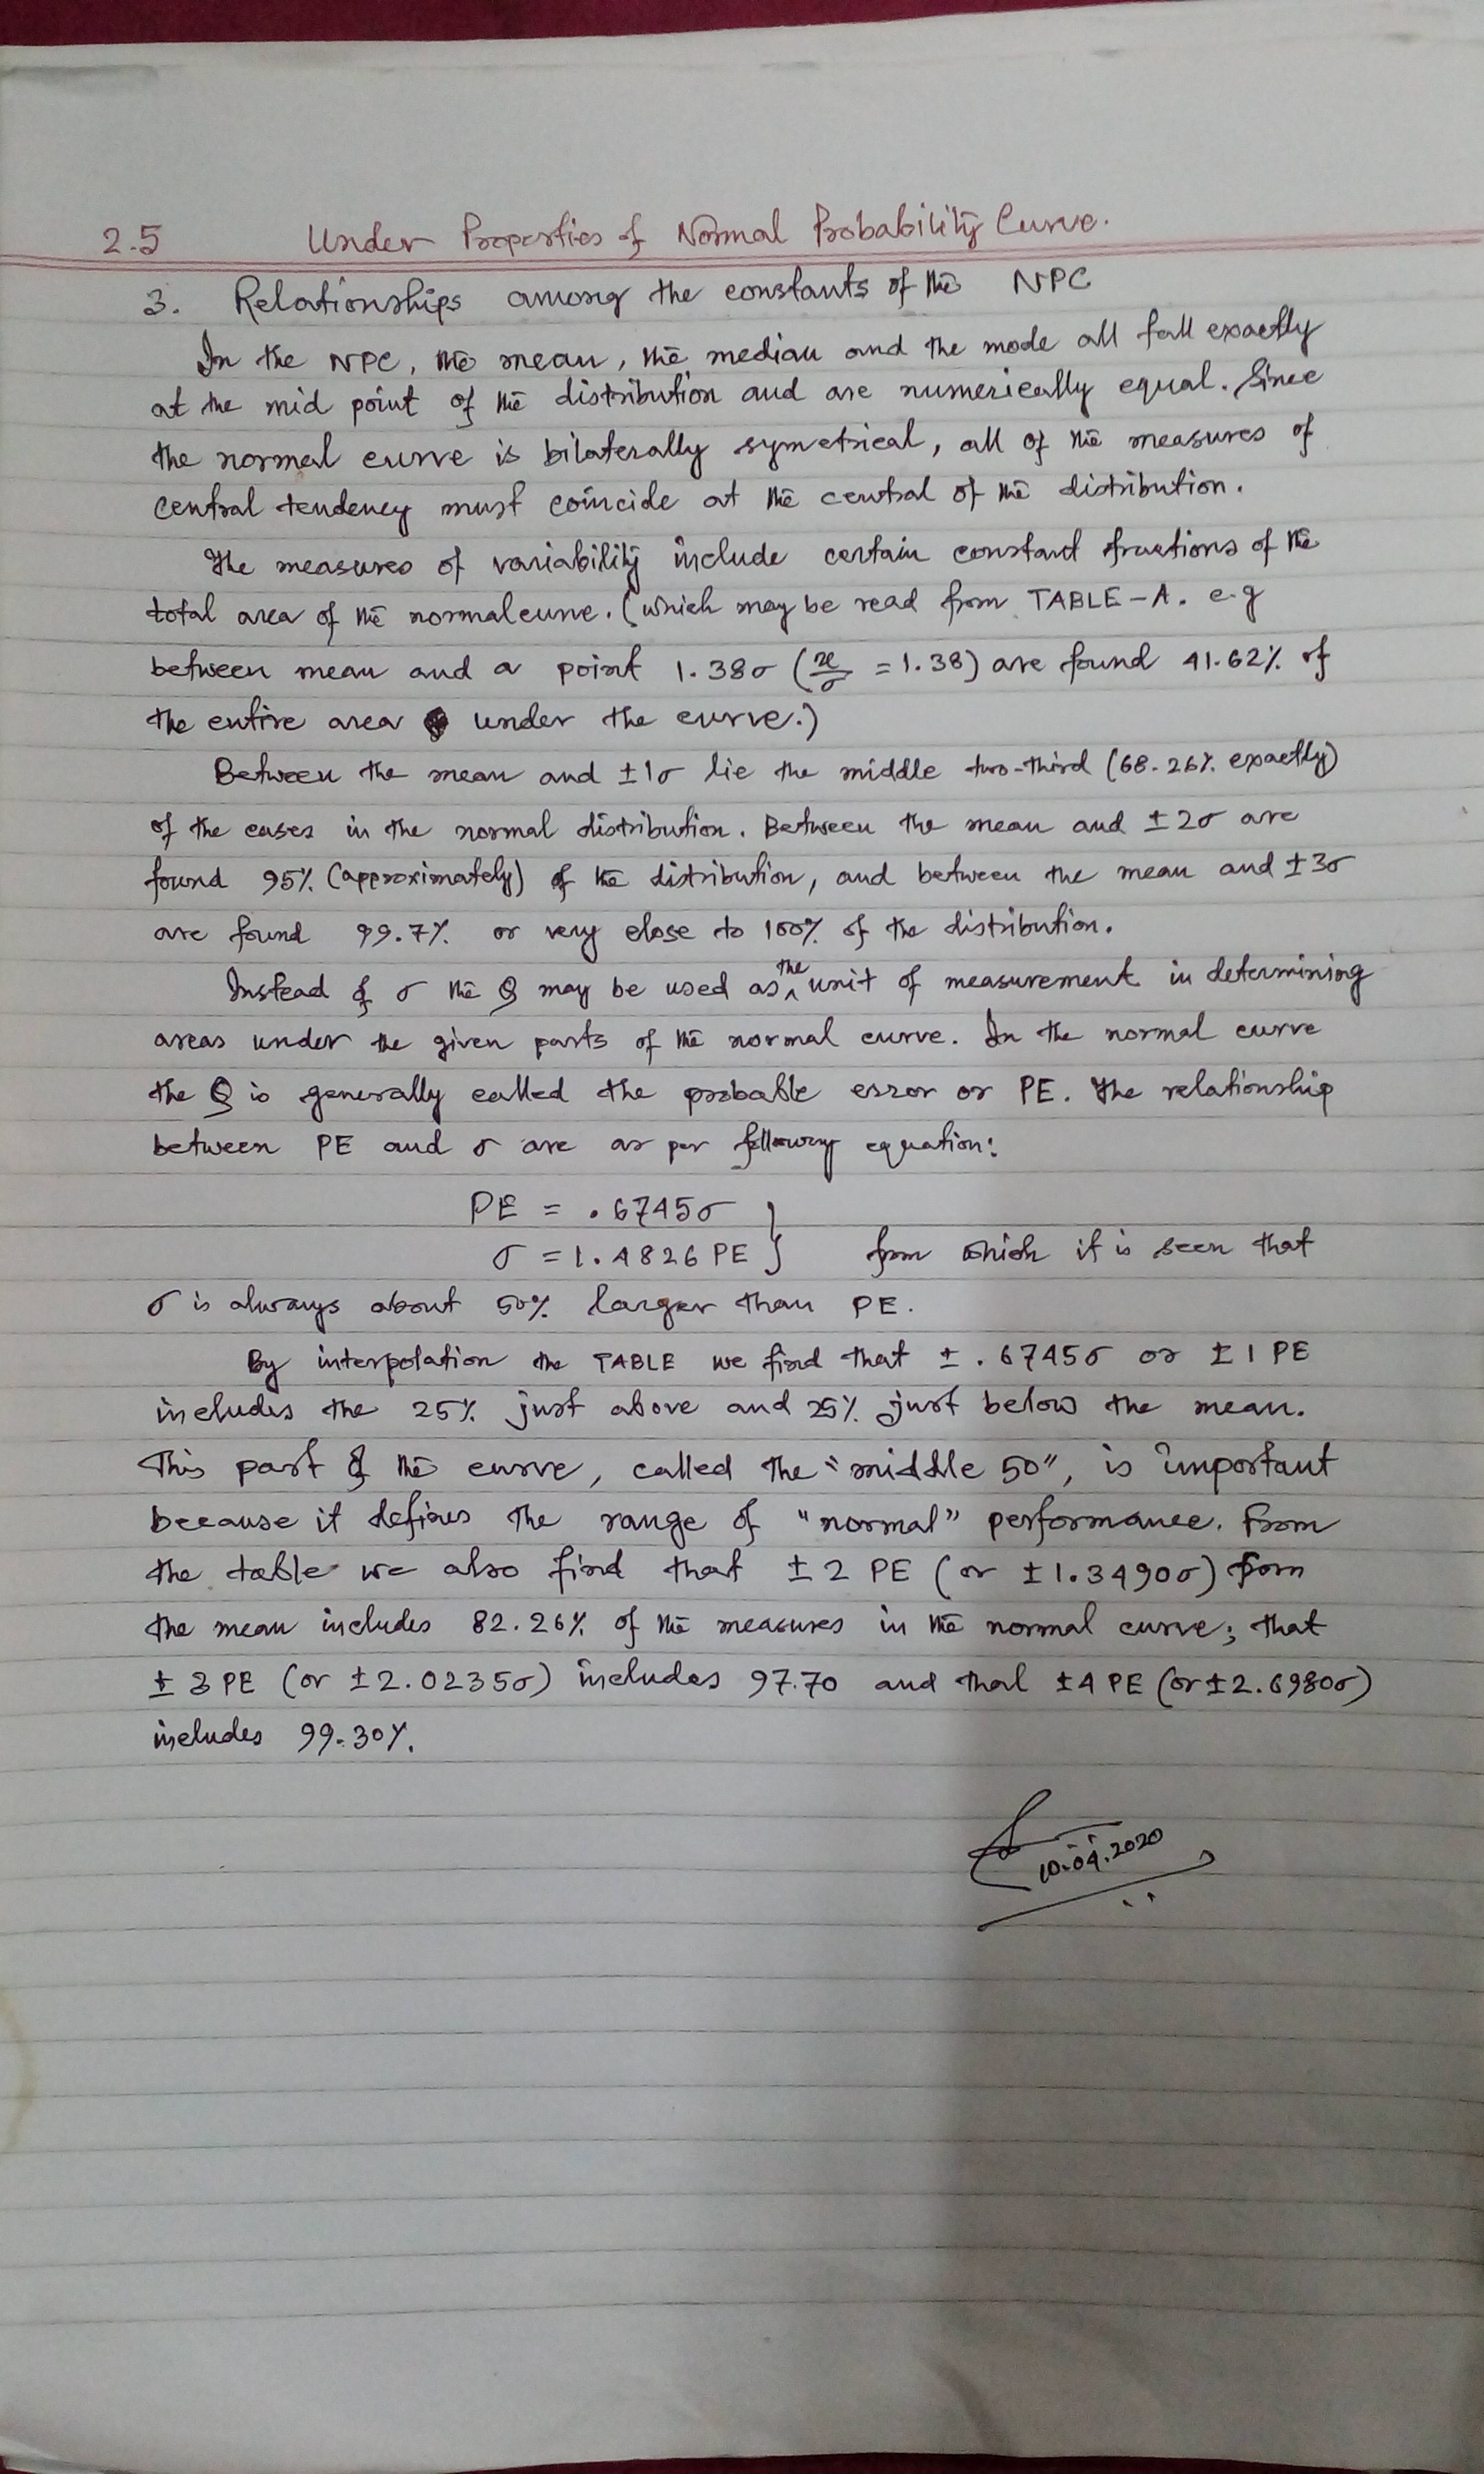 2.5 Under Properties of Normal Probability Curve.
3. Relationships among the constants of the NPC
In the NPC, the mean, the median and the mode all fall exactly
at the mid point of the distribution and are numerically equal. Since
the normal curve is bilaterally symetrical, all of the measures of
central tendency must coincide at the central of the distribution.
The measures of variability include certain constant fractions of the
total area of the normal curve. (which may be read from TABLE-A. e.g
between mean and a point 1.38σ (x/σ = 1.38) are found 41.62% of
the entire area under the curve.)
Between the mean and ±1σ lie the middle two-third (68.26% exactly)
of the cases in the normal distribution. Between the mean and ±2σ are
found 95% (approximately) of the distribution, and between the mean and ±3σ
are found 99.7% or very close to 100% of the distribution.
Instead of σ the Q may be used as the unit of measurement in determining
areas under the given parts of the normal curve. In the normal curve
the Q is generally called the probable error or PE. The relationship
between PE and σ are as per following equation:
PE = .6745σ
σ = 1.4826 PE } from which it is seen that
σ is always about 50% larger than PE.
By interpolation the TABLE we find that ± .6745σ or ±1 PE
includes the 25% just above and 25% just below the mean.
This part of the curve, called the "middle 50", is important
because it defines the range of "normal" performance. From
the table we also find that ±2 PE (or ±1.3490σ) from
the mean includes 82.26% of the measures in the normal curve; that
±3 PE (or ±2.0235σ) includes 97.70 and that ±4 PE (or ±2.6980σ)
includes 99.30%.
10.04.2020